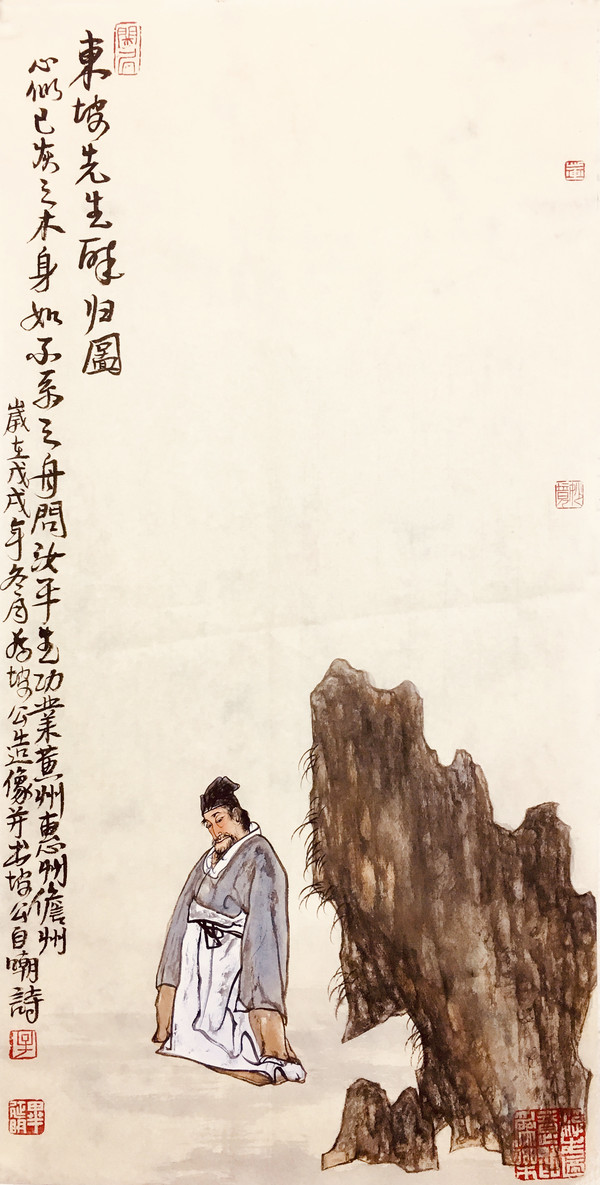 東坡先生醉归圖
心似已灰之木身如不系之舟問汝平生功业黄州惠州儋州
歲在戊戌年冬月为坡公造像并书坡公自嘲詩